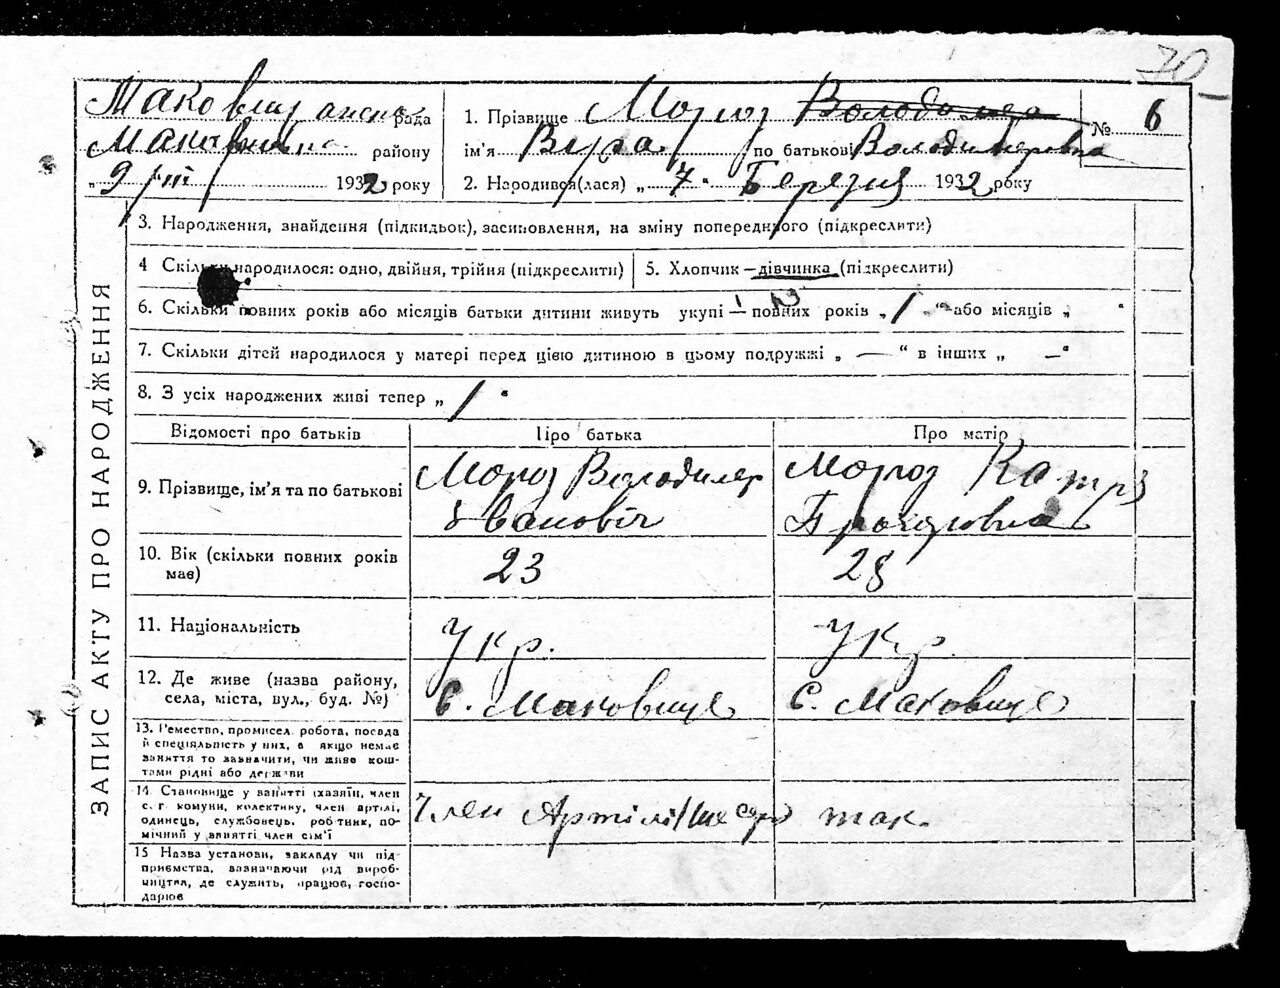 70
Маковищанська рада
Макарівського району
„ 9/III 1932 року
1. Прізвище Мороз Володимера № 6
ім'я Віра по батькові Володимерівна
2. Народився(лася) „ 7 " Березня 1932 року
ЗАПИС АКТУ ПРО НАРОДЖЕННЯ
3. Народження, знайдення (підкидьок), засиновлення, на зміну попереднього (підкреслити)
4 Скільки народилося: одно, двійня, трійня (підкреслити)
5. Хлопчик — дівчинка (підкреслити)
6. Скільки повних років або місяців батьки дитини живуть укупі — повних років „ 1 " або місяців „ "
7. Скільки дітей народилося у матері перед цією дитиною в цьому подружжі „ — " в інших „ — "
8. З усіх народжених живі тепер „ 1 "
Відомості про батьків Про батька Про матір
9. Прізвище, ім'я та по батькові
Мороз Володимер
Іванович
Мороз Катря
10. Вік (скільки повних років
має)
23 28
11. Національність Укр. Укр.
12. Де живе (назва району,
села, міста, вул., буд. №)
С. Маковище С. Маковище
13. Ремество, промисел, робота, посада
й спеціяльність у них, а якщо немає
заняття то зазначити, чи живе кош-
тами рідні або держави
14 Становище у занятті (хазяїн, член
с. г комуни, колективу, член артілі,
одинець, службовець, робітник, по-
мічний у занятті член сім'ї
Член Артілі так.
15 Назва установи, закладу чи під-
приємства, зазначаючи рід вироб-
ництва, де служить, працює, госпо-
дарює